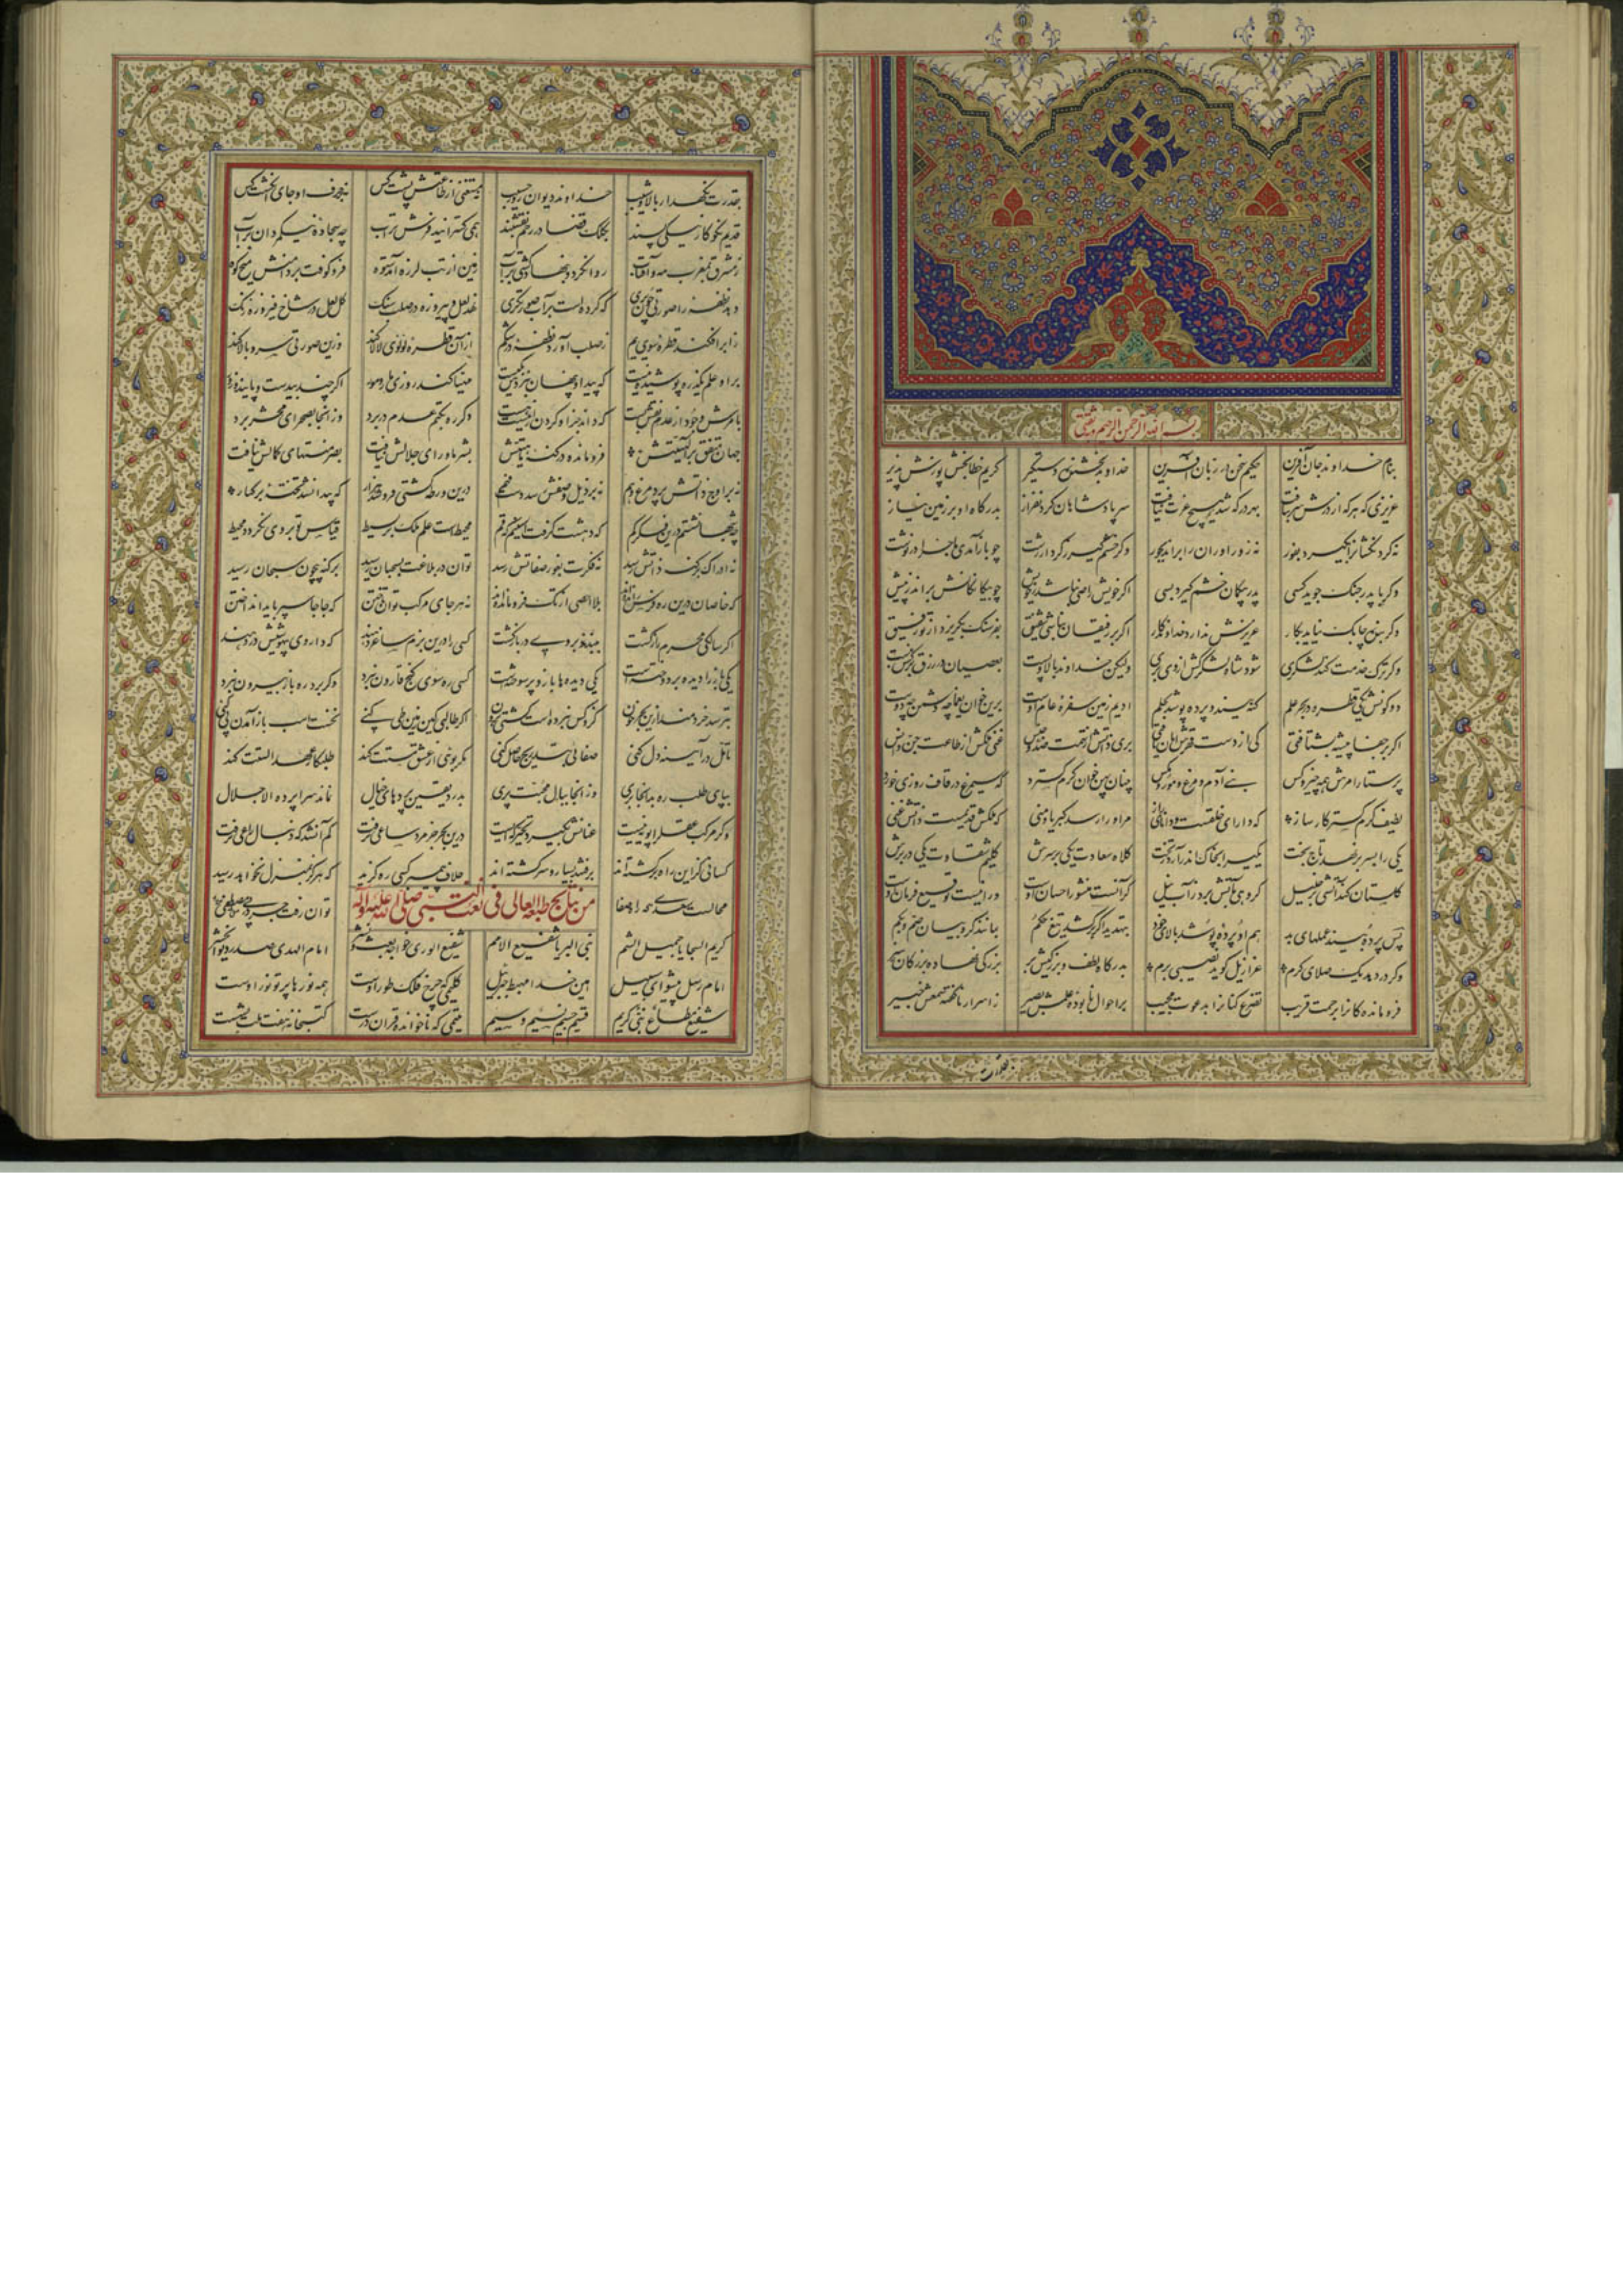 بسم الله الرحمن الرحیم و به ثقتی
بنام خداوند جان آفرین حکیم سخن در زبان آفرین خداوند بخشنده و دستگیر کریم خطابخش پوزش پذیر
عزیزی که هر کز درش سر بتافت بهر در که شد هیچ عزت نیافت سر پادشاهان گردنفراز بدرگاه او بر زمین نیاز
نه گردنکشانرا بگیرد بفور نه زورآورانرا براند بجور وگر خشم گیرد ز کردار زشت چو بازآمدی ماجرا درنوشت
وگر با پدر جنگ جوید کسی پدر بیگمان خشم گیرد بسی اگر خویش راضی نباشد ز خویش چو بیگانگانش براند ز پیش
وگر بنده چابک نیاید بکار عزیزش ندارد خداوندگار اگر بر رفیقان نباشی شفیق بفرسنگ بگریزد از تو رفیق
وگر ترک خدمت کند لشکری شود شاه لشکرکش از وی بری ولیکن خداوند بالا و پست بعصیان در رزق بر کس نبست
دو کونش یکی قطره در بحر علم گنه بیند و پرده پوشد بحلم ادیم زمین سفره عام اوست برین خوان یغما چه دشمن چه دوست
اگر بر جفا پیشه بشتافتی کی از دست قهرش امان یافتی بری ذاتش از تهمت ضد و جنس غنی ملکش از طاعت جن و انس
پرستار امرش همه چیز و کس بنی آدم و مرغ و مور و مگس چنان پهن خوان کرم گسترد که سیمرغ در قاف روزی خورد
لطیف کرم گستر کارساز که دارای خلقست و دانای راز مر او را رسد کبریا و منی که ملکش قدیمست و ذاتش غنی
یکی را بسر برنهد تاج بخت یکی را بخاک اندر آرد ز تخت کلاه سعادت یکی بر سرش گلیم شقاوت یکی در برش
گلستان کند آتشی بر خلیل گروهی بآتش برد ز آب نیل گر آنست منشور احسان اوست ور اینست توقیع فرمان اوست
پس پرده بیند عملهای بد هم او پرده پوشد بآلای خود بتهدید اگر برکشد تیغ حکم بمانند کروبیان صم و بکم
وگر در دهد یک صلای کرم عزازیل گوید نصیبی برم بدرگاه لطف و بزرگیش بر بزرگان نهاده بزرگی ز سر
فروماندگانرا برحمت قریب تضرع کنانرا بدعوت مجیب بر احوال نابوده علمش بصیر ز اسرار ناگفته لطفش خبیر
بقدرت
بقدرت نگهدار بالا و شیب خداوند دیوان روز حسیب نه مستغنی از طاعتش پشت کس نه بر حرف او جای انگشت کس
قدیم نکوکار نیکی پسند بکلک قضا در رحم نقشبند همی گسترانید فرش تراب چو سجاده نیکمردان بر آب
ز مشرق بمغرب مه و آفتاب روان کرد و بنهاد گیتی بر آب زمین از تب لرزه آمد ستوه فرو کوفت بر دامنش میخ کوه
دهد نطفه را صورتی چون پری که کرده است بر آب صورتگری نهد لعل و پیروزه در صلب سنگ گل لعل در شاخ فیروزه رنگ
ز ابر افکند قطره سوی یم ز صلب آورد نطفه در شکم از آن قطره لولوی لالا کند وزین صورتی سرو بالا کند
بر او علم یکذره پوشیده نیست که پیدا و پنهان بنزدش یکیست مهیا کند روزی مار و مور اگر چند بیدست و پایند و زور
بامرش وجود از عدم نقش بست که داند جز او کردن از نیست هست دگر ره بکتم عدم در برد وز آنجا بصحرای محشر برد
جهان متفق بر الهیتش فرومانده در کنه ماهیتش بشر ماورای جلالش نیافت بصر منتهای کمالش نیافت
نه بر اوج ذاتش پرد مرغ وهم نه بر ذیل وصفش رسد دست فهم درین ورطه کشتی فرو شد هزار که پیدا نشد تخته بر کنار
چه شبها نشستم درین فکر گم که دهشت گرفت آستینم که قم محیط است علم ملک بر بسیط قیاس تو بر وی نگردد محیط
نه ادراک بر کنه ذاتش رسد نه فکرت بغور صفاتش رسد توان در بلاغت بسحبان رسید نه بر کنه بیچون سبحان رسید
که خاصان درین ره فرس رانده اند بلا احصی از تک فرومانده اند نه هر جای مرکب توان تاختن که جاها سپر باید انداختن
اگر سالکی محرم راز گشت ببندند بر وی در بازگشت کسی را درین بزم ساغر دهند که داروی بیهوشیش در دهند
یکی باز را دیده بر دوخته است یکی دیده ها باز و پر سوخته است کسی ره سوی گنج قارون نبرد وگر برد ره باز بیرون نبرد
بترسد خردمند ازین بحر خون کزو کس نبرده است کشتی برون اگر طالبی کاین زمین طی کنی نخست اسب باز آمدن پی کنی
تامل در آیینه دل کنی صفائی بتدریج حاصل کنی مگر بویی از عشق مستت کند طلبکار عهد الستت کند
بپای طلب ره بدانجا بری وز آنجا ببال محبت پری بدرد یقین پردهای خیال نماند سراپرده الا جلال
وگر مرکب عقل را پویه نیست عنانش بگیرد تحیر که ایست درین بحر جز مرد ساعی نرفت گم آن شد که دنبال راعی نرفت
کسانی کزین راه برگشته اند برفتند بسیار و سرگشته اند خلاف پیمبر کسی ره گزید که هرگز بمنزل نخواهد رسید
محالست سعدی که راه صفا توان رفت جز بر پی مصطفی
فی نعت النبی صلی الله علیه وآله
کریم السجایا جمیل الشیم نبی البرایا شفیع الامم شفیع الوری خواجه بعث و نشر امام الهدی صدر دیوان حشر
امام رسل پیشوای سبیل امین خدا مهبط جبرئیل کلیمی که چرخ فلک طور اوست همه نورها پرتو نور اوست
شفیع مطاع نبی کریم قسیم جسیم نسیم وسیم یتیمی که ناخوانده قران درست کتبخانه هفت ملت بشست